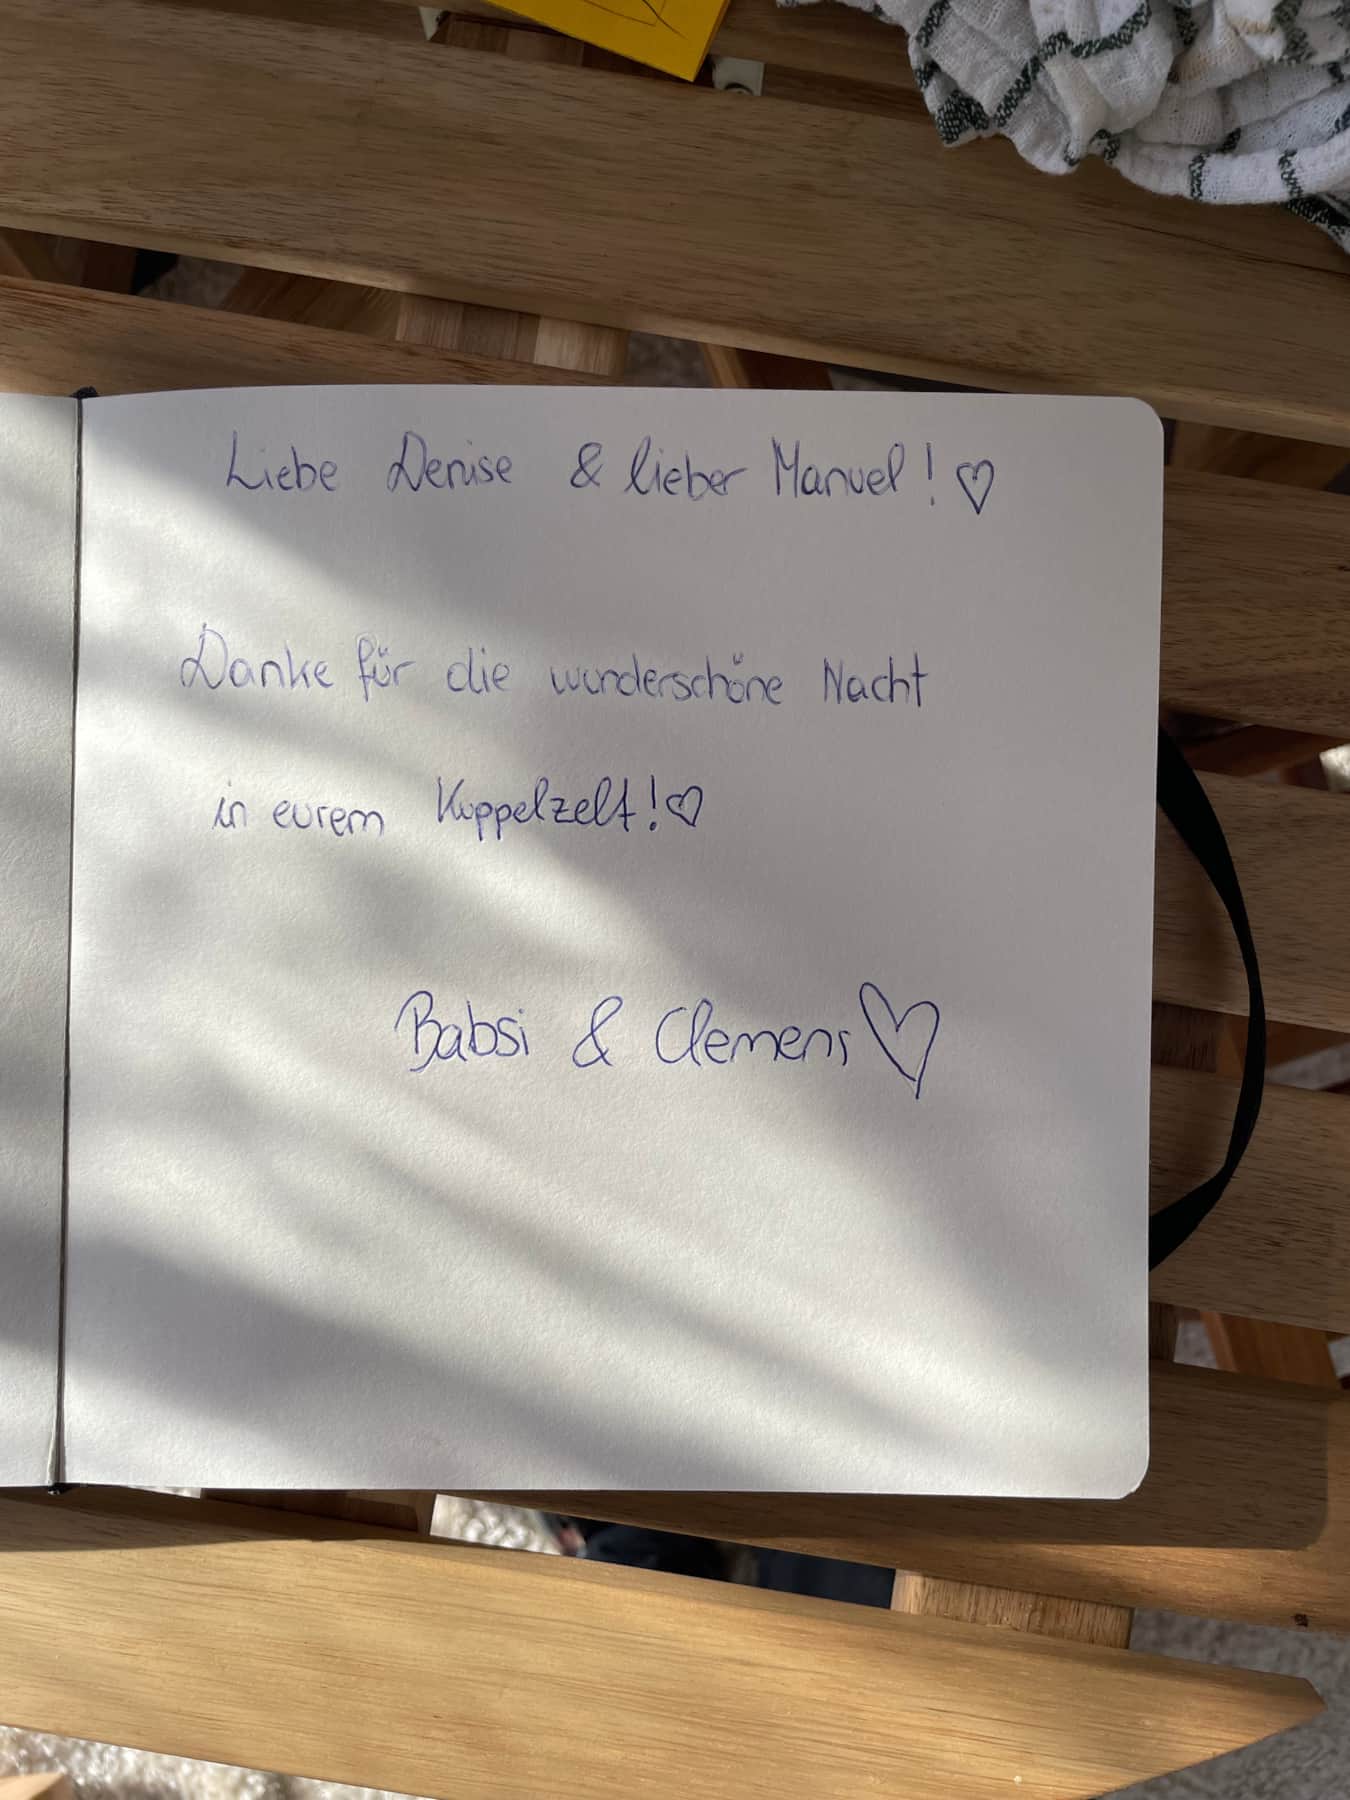 Liebe Denise & lieber Manuel! ♡
Danke für die wunderschöne Nacht
in eurem Kuppelzelt! ♡
Babsi & Clemens ♡